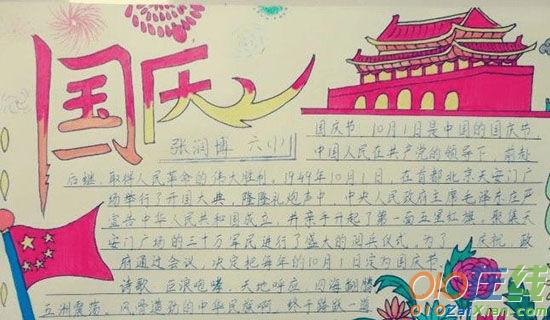 国庆
张润博 六(1)
国庆节,10月1日是中国的国庆节,
中国人民在共产党的领导下,前赴
后继,取得人民革命的伟大胜利,1949年10月1日,在首都北京天安门广
场举行了开国大典,隆隆礼炮声中,中央人民政府主席毛泽东庄严
宣告中华人民共和国成立,并亲手升起了第一面五星红旗,聚集天
安门广场的三十万军民进行了盛大的阅兵仪式,为了 庆祝,政
府通过会议,决定把每年的10月1日定为国庆节,
诗歌:巨浪咆哮,天地呼应,四海翻腾
五洲震荡,风雷激动的中华民族啊,终于
在线
ZaiXian.com